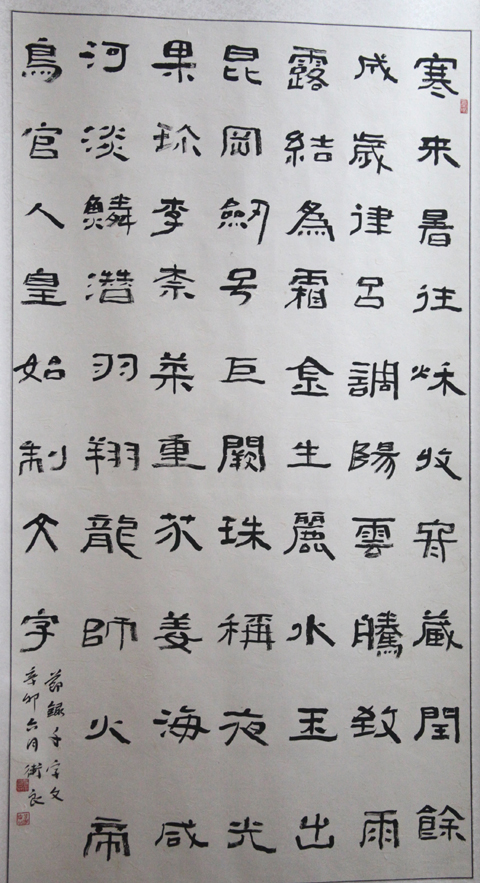 寒来暑往秋收冬藏閏餘
成歲律呂調陽雲騰致雨
露結為霜金生麗水玉出
昆岡劒号巨闕珠稱夜光
果珎李柰菜重芥姜海咸
河淡鱗潛羽翔龍師火帝
鳥官人皇始制文字
節錄千字文
辛卯六月